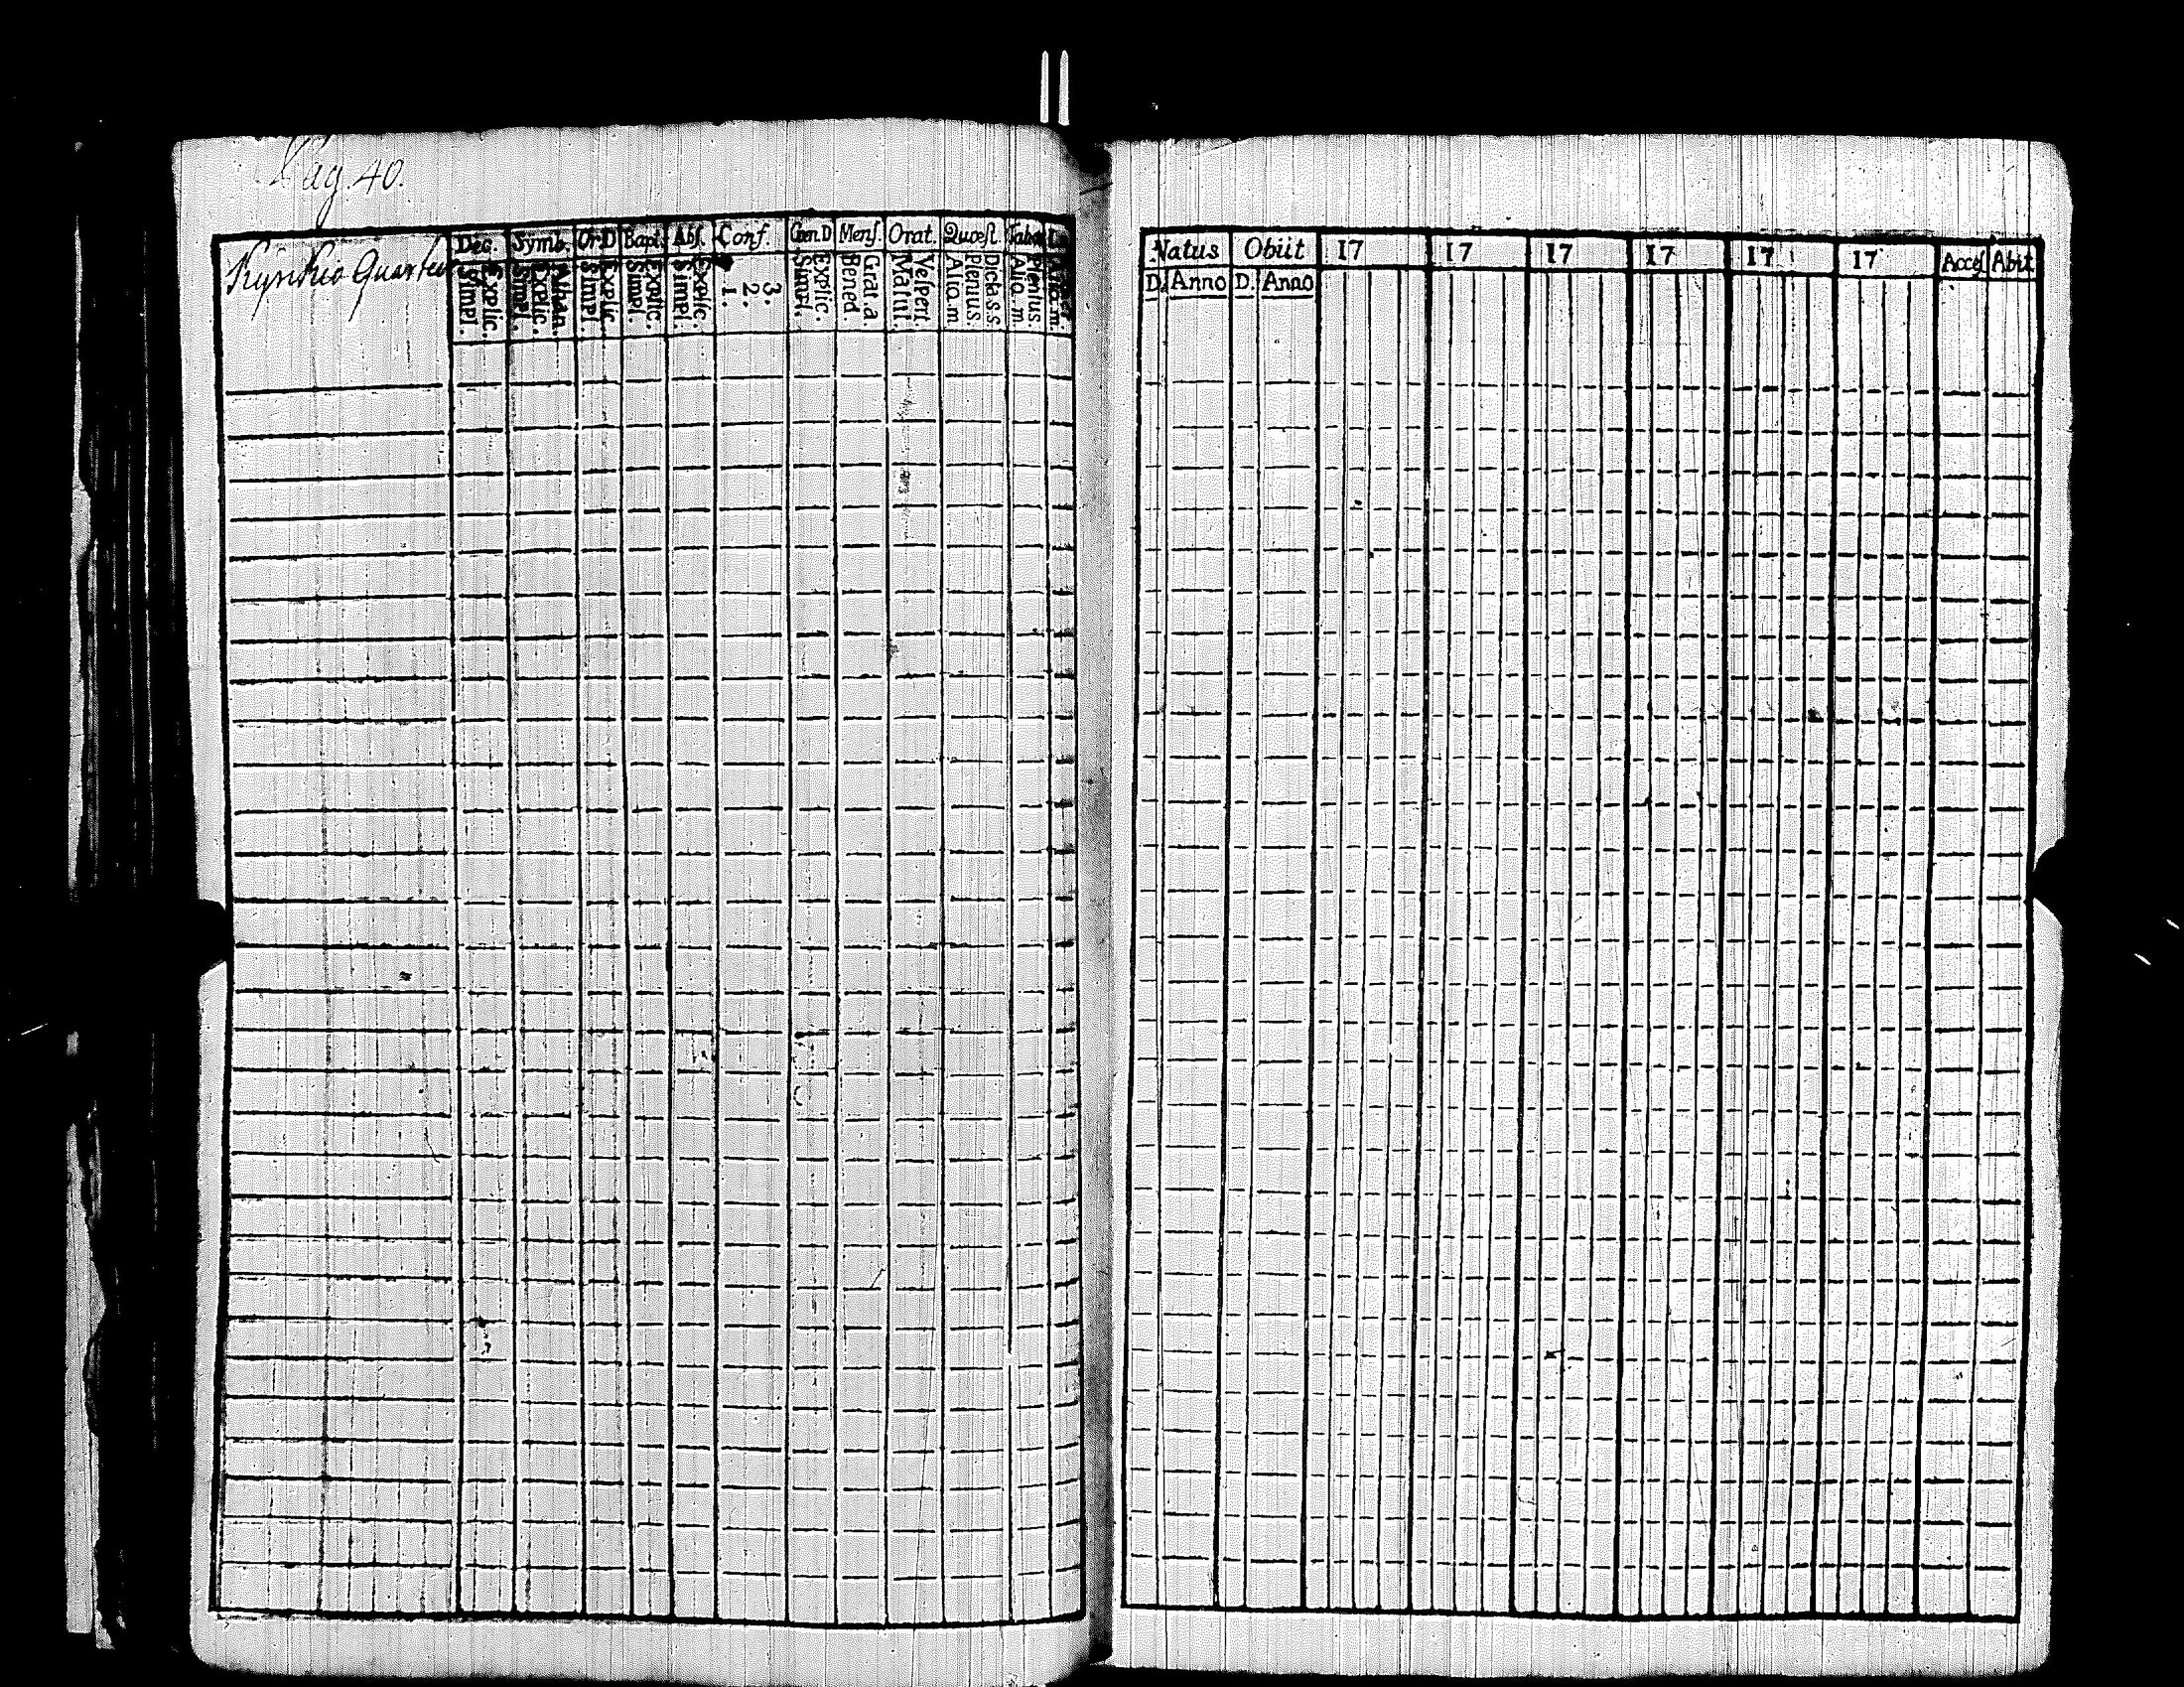 Pag. 40.
Kyrckio Quarter
Dec. Symb. Or.D Bapt. Abs. Conf. Cœn.D Mens. Orat. Quæst. Tabu
Explic. Simpl. Athan. Explic. Simpl. Explic. Simpl. Explic. Simpl. Explic. Simpl. 3. 2. 1. Explic. Simpl. Grat.a. Bened. Vespert. Matut. Dicta.s.s. Plenius. Aliq.m Plenius. Aliq.m
Natus Obiit 17 17 17 17 17 17 Acces Abiit
D. Anno D. Anno